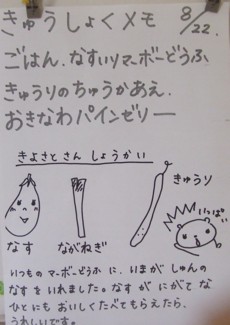 きゅうしょくメモ 8/22.
ごはん.なすいりマーボーどうふ
きゅうりのちゅうかあえ.
おきなわパインゼリー
きよさとさんしょうかい
きゅうり
いっぱい
なす ながねぎ
いつものマーボーどうふに、いまがしゅんの
なすをいれました。なすがにがてな
ひとにもおいしくたべてもらえたら、
うれしいです。